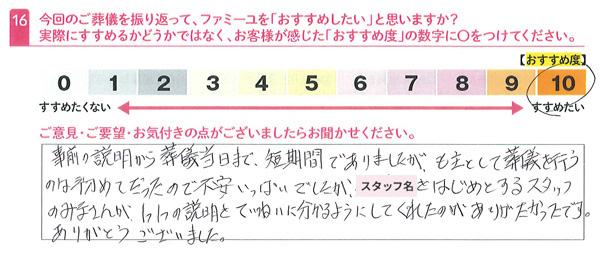 16 今回のご葬儀を振り返って、ファミーユを「おすすめしたい」と思いますか?
実際にすすめるかどうかではなく、お客様が感じた「おすすめ度」の数字に○をつけてください。
【おすすめ度】
0 1 2 3 4 5 6 7 8 9 10
すすめたくない すすめたい
ご意見・ご要望・お気付きの点がございましたらお聞かせください。
事前の説明から葬儀当日まで、短期間でありましたが、も主として葬儀を行う
のは初めてだったので不安いっぱいでしたが、スタッフ名をはじめとするスタッフ
のみなさんが、1つ1つの説明をていねいに分かるようにしてくれたのがありがたかったです。
ありがとうございました。